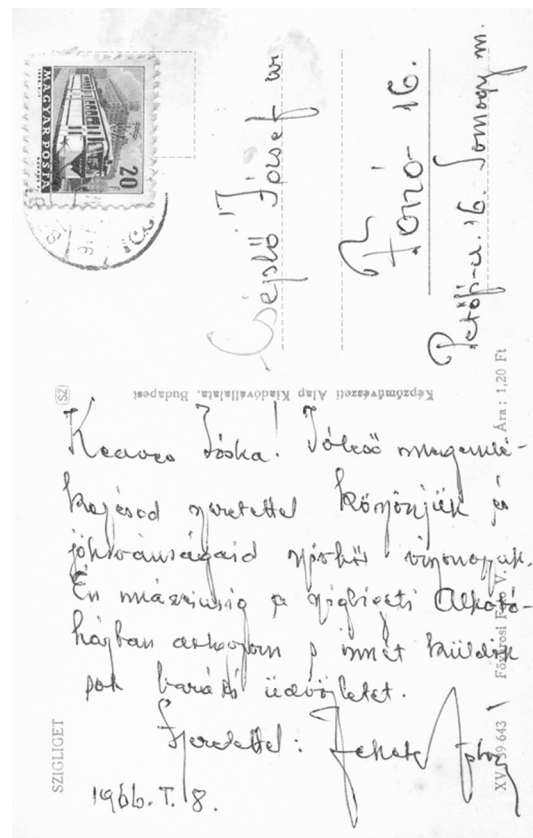 MAGYAR POSTA
20
Csépkő József úr
Fonó- 16.
Petőfi-u. 16. Somogy m.
Képzőművészeti Alap Kiadóvállalata, Budapest
Ára: 1,20 Ft
SZ
Kedves Jóska! Jóleső megemlé-
kezésed szeretettel köszönjük és
jókívánságaid szívből viszonozzuk.
Én márciusig a szigligeti Alkotó-
házban dolgozom s innét küldök
sok baráti üdvözletet.
Szeretettel: Fekete István
1966. I. 8.
SZIGLIGET
Fővárosi F. V.